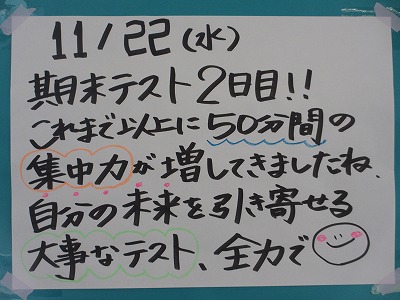 11/22(水)
期末テスト2日目!!
これまで以上に50分間の
集中力が増してきましたね、
自分の未来を引き寄せる
大事なテスト、全力で